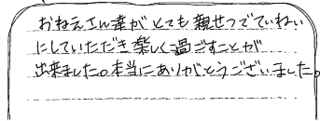 おねえさん達がとても親せつでていねい
にしていただき楽しく過ごすことが
出来ました。本当にありがとうございました。